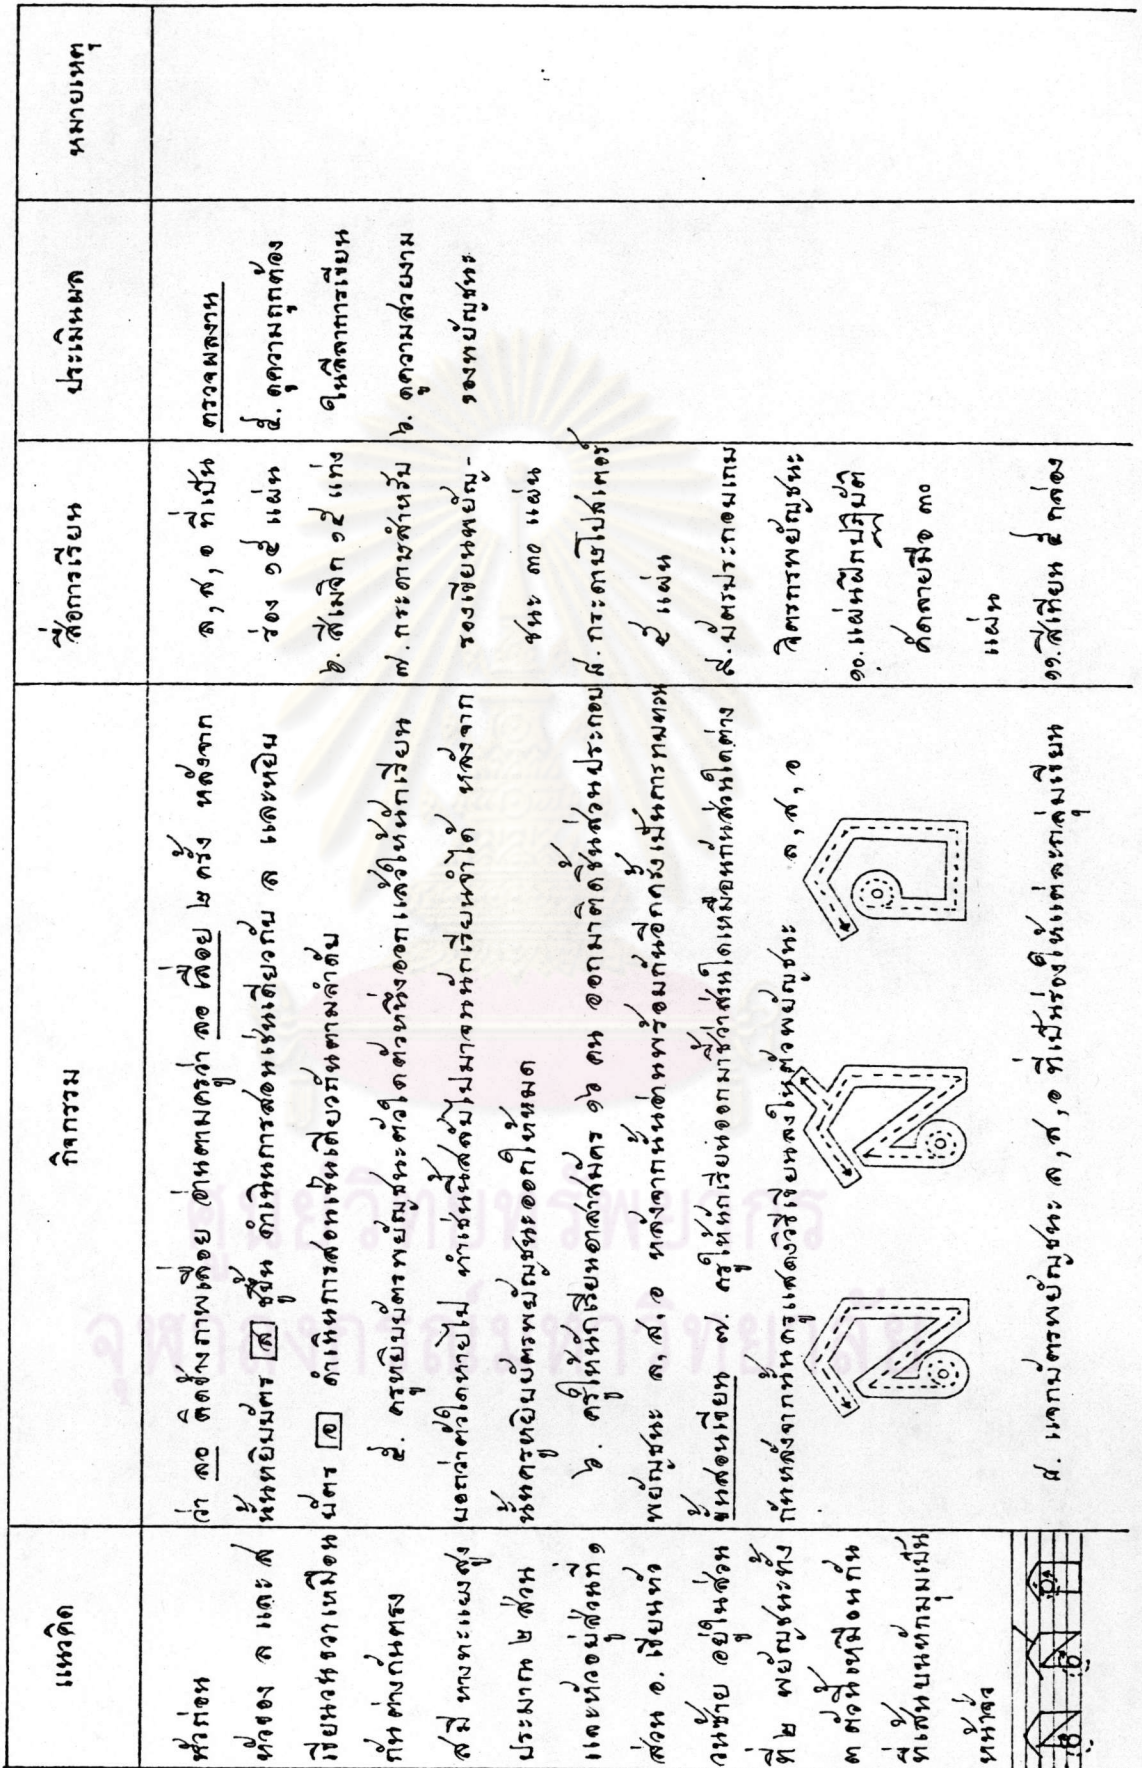 แนวคิด
หัวก่อน
หัวของ ล และ ส
เขียนวนขวาเหมือน
กันต่างกันตรง
ส มี หางทะแยงสูง
ประมาณ ๒ ส่วน
และหัวอยู่ส่วนที่ ๑
ส่วน อ. เขียนหัว
วนซ้าย อยู่ในส่วน
ที่ ๒ พยัญชนะทั้ง
๓ ตัวนี้เหมือนกัน
ที่เส้นบนหักมุมเป็น
หน้าจั่ว
กิจกรรม
ว่า ลอ ติดข้างภาพเลื่อย อ่านตามครูว่า ลอ เลื่อย ๒ ครั้ง หลังจาก
นั้นหยิบบัตร ส ชูขึ้น ดำเนินการสอนเช่นเดียวกับ ล และหยิบ
บัตร อ ดำเนินการสอนเช่นเดียวกันตามลำดับ
๕. ครูหยิบบัตรพยัญชนะตัวใดตัวหนึ่งออกแล้วให้นักเรียน
บอกว่าตัวใดหายไป ทำเช่นนี้สลับไปมาจนนักเรียนจำได้ หลังจาก
นั้นครูหยิบบัตรพยัญชนะออกให้หมด
๖. ครูให้นักเรียนอาสาสมัคร ๑๖ คน ออกมาติดชิ้นส่วนประกอบ
พยัญชนะ ล, ส, อ หลังจากนั้นอ่านพร้อมกันอีกครั้งเป็นการทบทวน
ขั้นสอนเขียน ๗. ครูให้นักเรียนออกมาชี้ว่าส่วนใดเหมือนกันส่วนใดต่าง
กันหลังจากนั้นครูแสดงวิธีเขียนลงในตัวพยัญชนะ ล, ส, อ
๘. แจกบัตรพยัญชนะ ล, ส, อ ที่เป็นร่องให้แต่ละกลุ่มเขียน
สื่อการเรียน
ล, ส, อ ที่เป็น
ร่อง ๑๕ แผ่น
๖. สีเมจิก ๑๕ แท่ง
๗. กระดาษสำหรับ
รองเขียนพยัญ-
ชนะ ๓๐ แผ่น
๘. กระดาษโปสเตอร์
๕ แผ่น
๙. บัตรประกอบเกม
จิตรกรพยัญชนะ
๑๐. แผ่นฝึกปฏิบัติ
คัดลายมือ ๓๐
แผ่น
๑๑. สีเทียน ๕ กล่อง
ประเมินผล
ตรวจผลงาน
๕. ดูความถูกต้อง
ในลีลาการเขียน
๖. ดูความสวยงาม
ของพยัญชนะ
หมายเหตุ
ศูนย์วิทยทรัพยากร
จุฬาลงกรณ์มหาวิทยาลัย